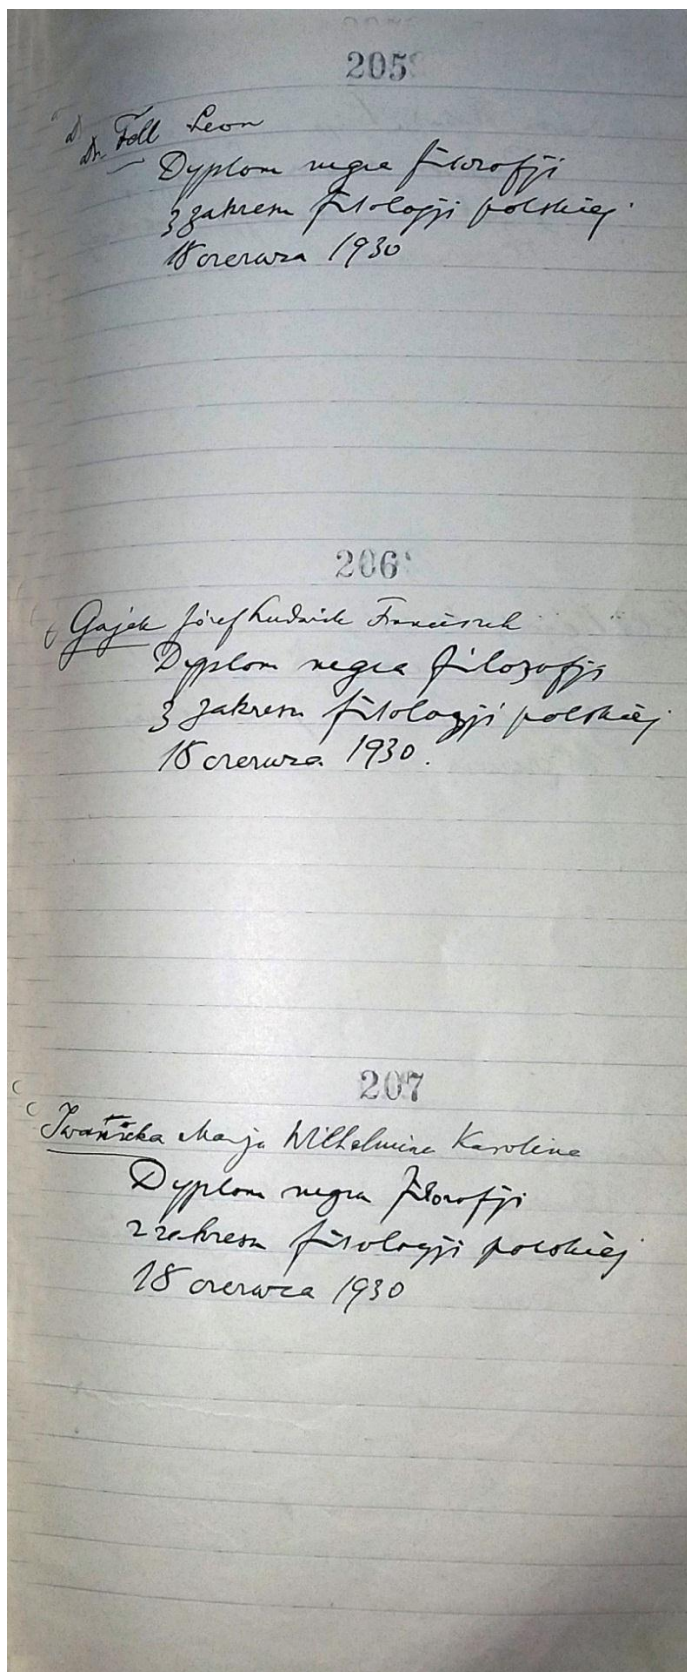 205
Dr. Foll Leon
Dyplom magra filozofji
z zakresu filologji polskiej
18 czerwca 1930
206
Gajek Józef Ludwik Franciszek
Dyplom magra filozofji
z zakresu filologji polskiej
18 czerwca 1930.
207
Iwanicka Marja Wilhelmina Karolina
Dyplom magra filozofji
z zakresu filologji polskiej
18 czerwca 1930